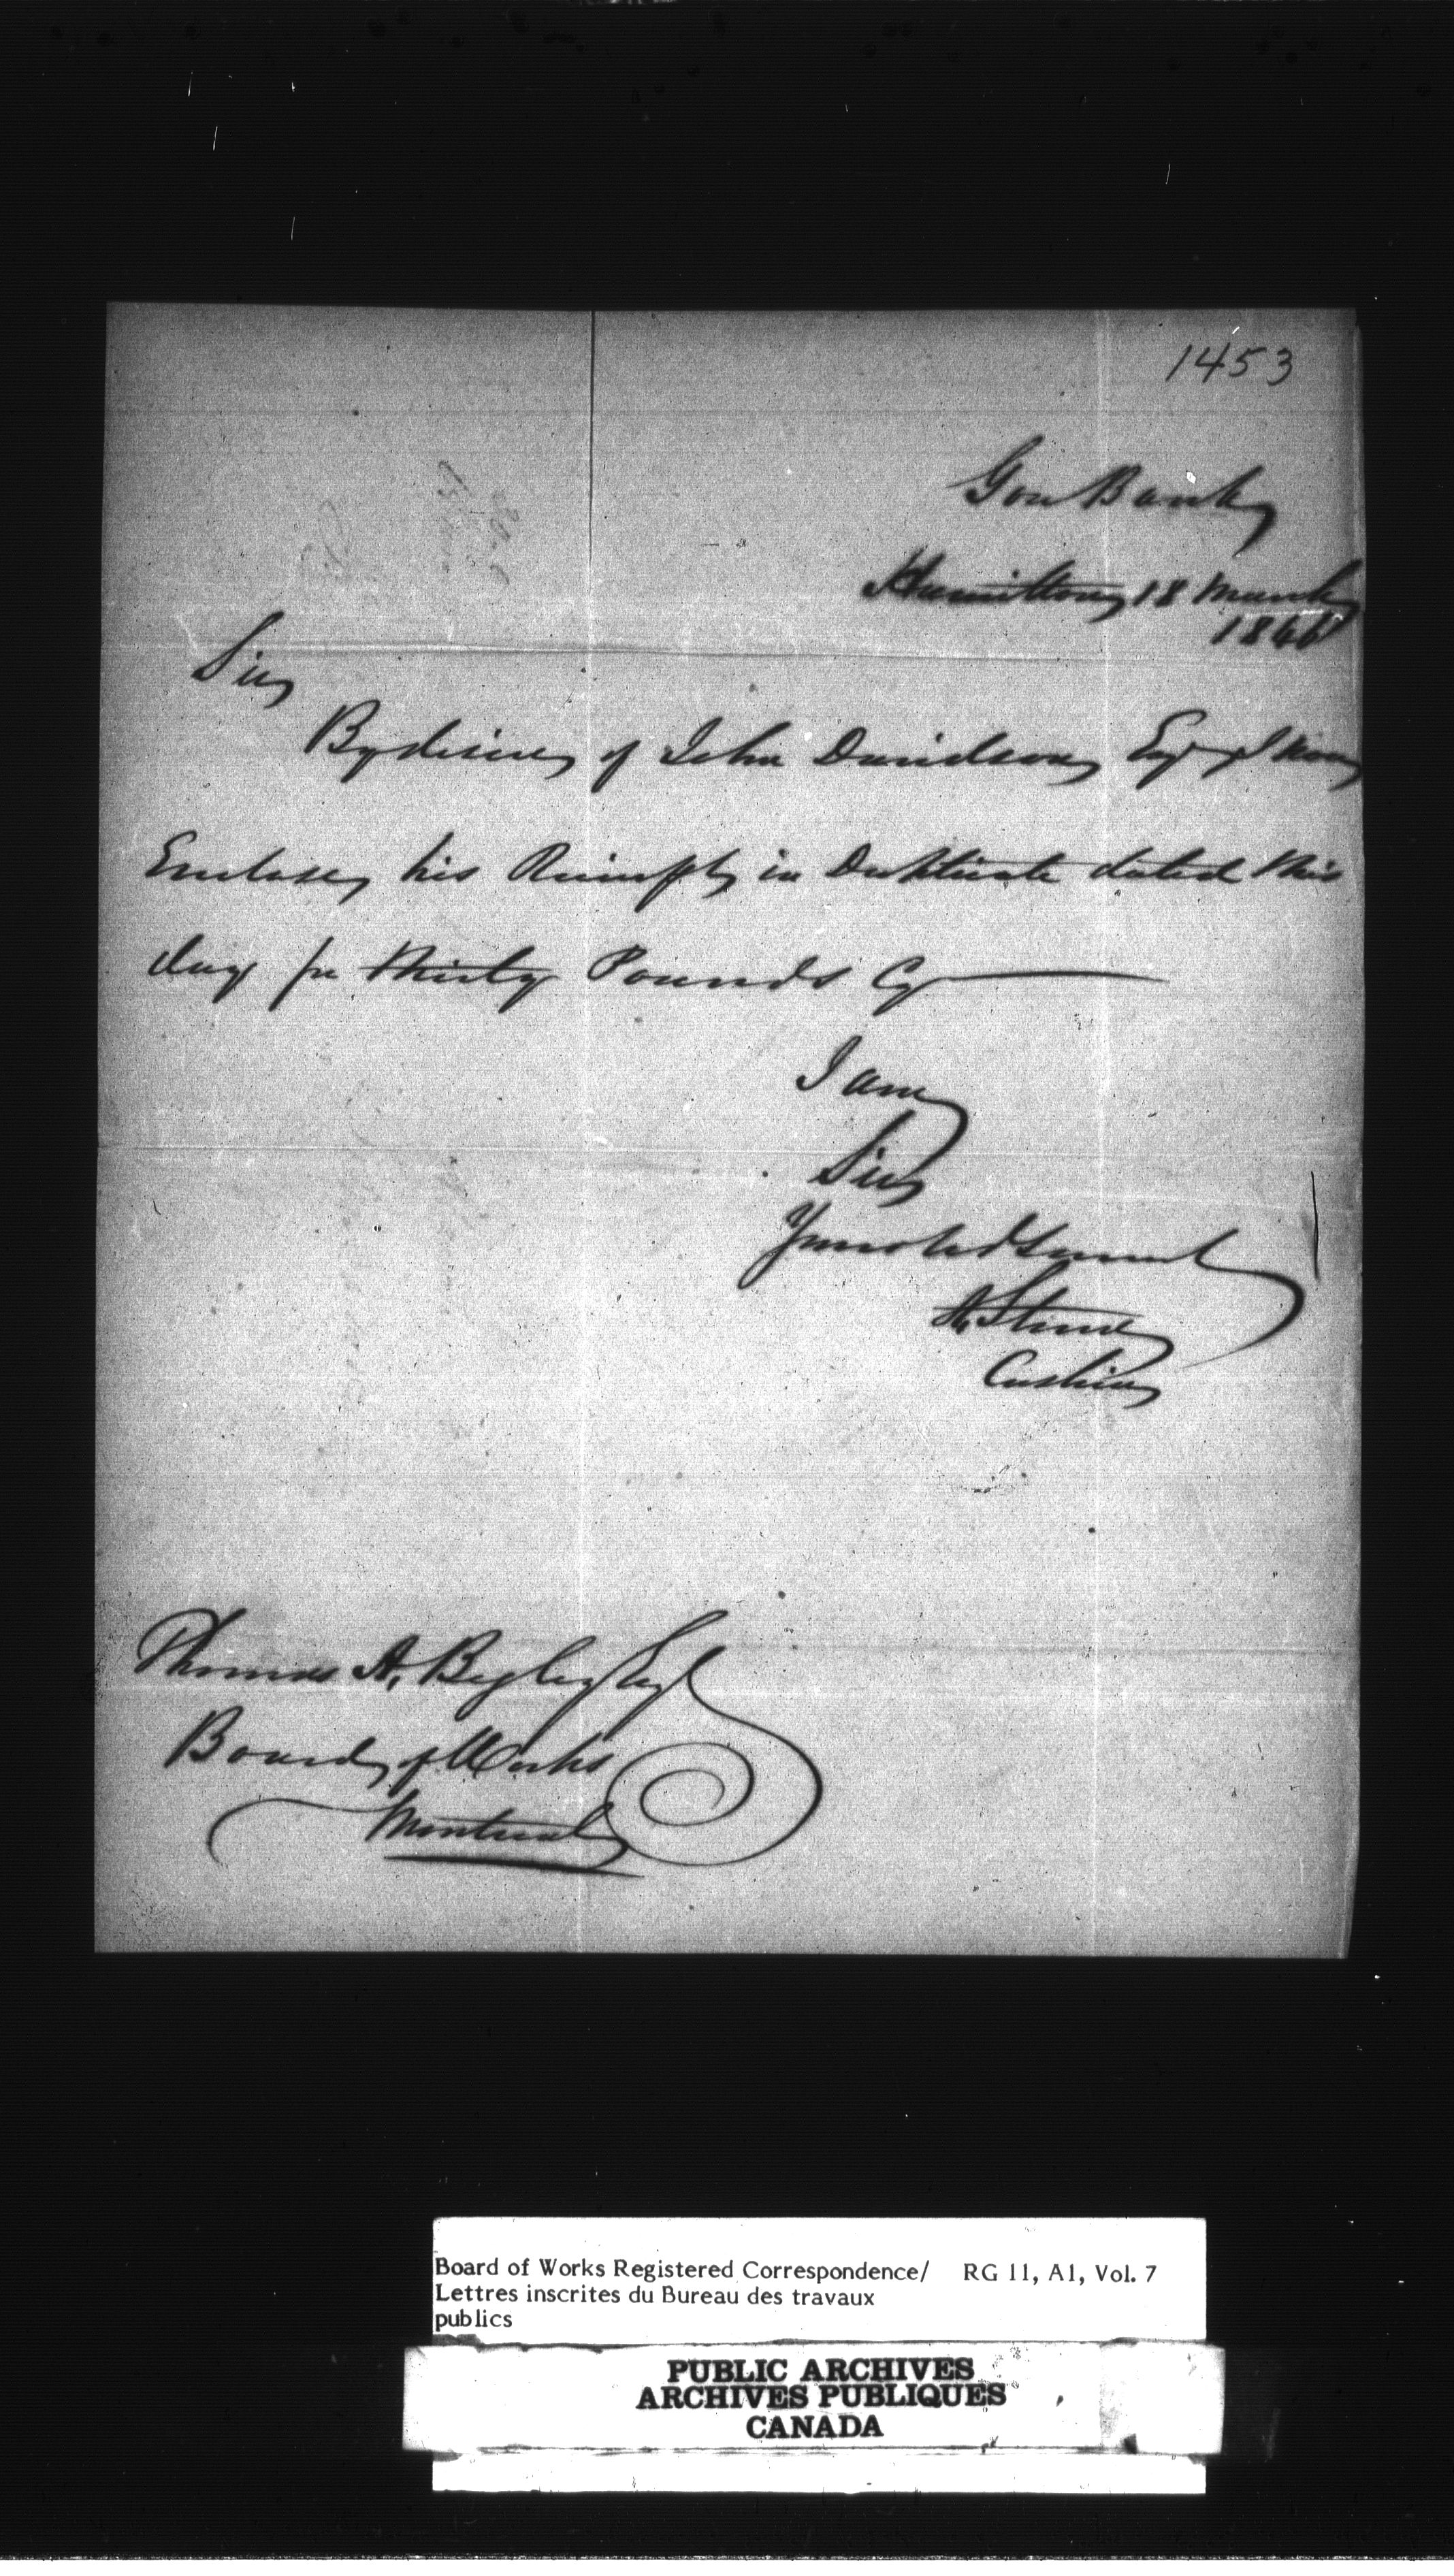 1453
Gore Bank
Hamilton 18 March
1846
Sir
By desire of John Davidson Esqr I now
Enclose his Receipt in Duplicate dated this
day for Thirty Pounds Cy
I am
Sir
Your obedt Servant
A. Steven
Cashier
Thomas A. Begley Esqr
Board of Works
Montreal
Board of Works Registered Correspondence/ RG 11, A1, Vol. 7
Lettres inscrites du Bureau des travaux
publics
PUBLIC ARCHIVES
ARCHIVES PUBLIQUES
CANADA